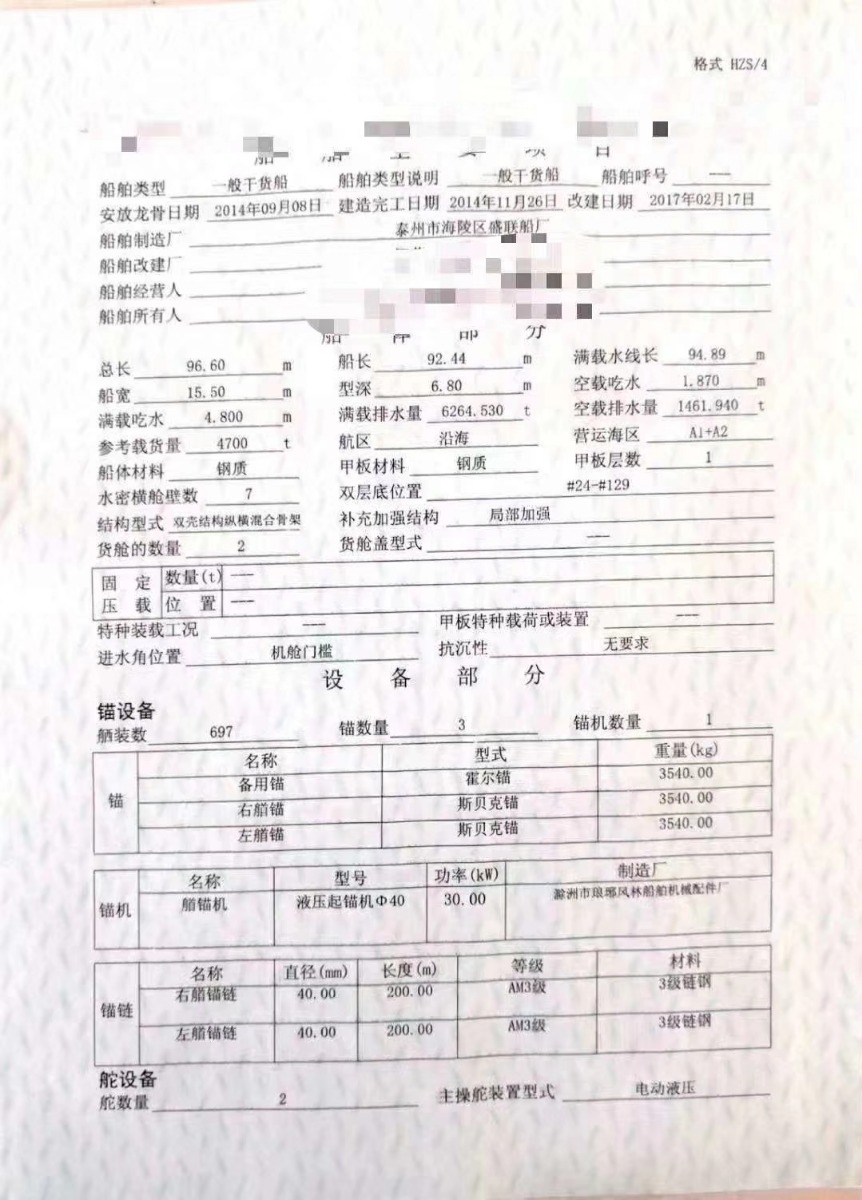 格式 HZS/4
船舶主要项目
船舶类型 一般干货船 船舶类型说明 一般干货船 船舶呼号 ---
安放龙骨日期 2014年09月08日 建造完工日期 2014年11月26日 改建日期 2017年02月17日
船舶制造厂 泰州市海陵区盛联船厂
船舶改建厂
船舶经营人
船舶所有人
船体部分
总长 96.60 m 船长 92.44 m 满载水线长 94.89 m
船宽 15.50 m 型深 6.80 m 空载吃水 1.870 m
满载吃水 4.800 m 满载排水量 6264.530 t 空载排水量 1461.940 t
参考载货量 4700 t 航区 沿海 营运海区 A1+A2
船体材料 钢质 甲板材料 钢质 甲板层数 1
水密横舱壁数 7 双层底位置 #24-#129
结构型式 双壳结构纵横混合骨架 补充加强结构 局部加强
货舱的数量 2 货舱盖型式 ---
固定 数量(t) ---
压载 位置 ---
特种装载工况 --- 甲板特种载荷或装置 ---
进水角位置 机舱门槛 抗沉性 无要求
设备部分
锚设备
舾装数 697 锚数量 3 锚机数量 1
名称 型式 重量(kg)
备用锚 霍尔锚 3540.00
锚 右艏锚 斯贝克锚 3540.00
左艏锚 斯贝克锚 3540.00
名称 型号 功率(kW) 制造厂
锚机 艏锚机 液压起锚机Φ40 30.00 滁洲市琅琊风林船舶机械配件厂
名称 直径(mm) 长度(m) 等级 材料
右艏锚链 40.00 200.00 AM3级 3级链钢
锚链
左艏锚链 40.00 200.00 AM3级 3级链钢
舵设备
舵数量 2 主操舵装置型式 电动液压